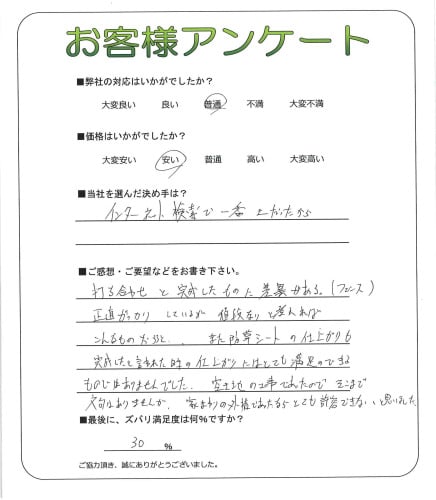 お客様アンケート
■弊社の対応はいかがでしたか？
大変良い 良い 普通 不満 大変不満
■価格はいかがでしたか？
大変安い 安い 普通 高い 大変高い
■当社を選んだ決め手は？
インターネット検索で一番上だったから
■ご感想・ご要望などをお書き下さい。
打ち合わせと完成したものに差異がある。(フェンス)
正直がっかりしているが値段なりと考えれば
こんなものだろうと、、また防草シートの仕上がりも
完成したと言われた時の仕上がりにはとても満足のできる
ものではありませんでした。空き地の工事であったので そこまで
文句はありませんが、家まわりの外構であったならとても許容できないと思いました
■最後に、ズバリ満足度は何%ですか？
30 %
ご協力頂き、誠にありがとうございました。